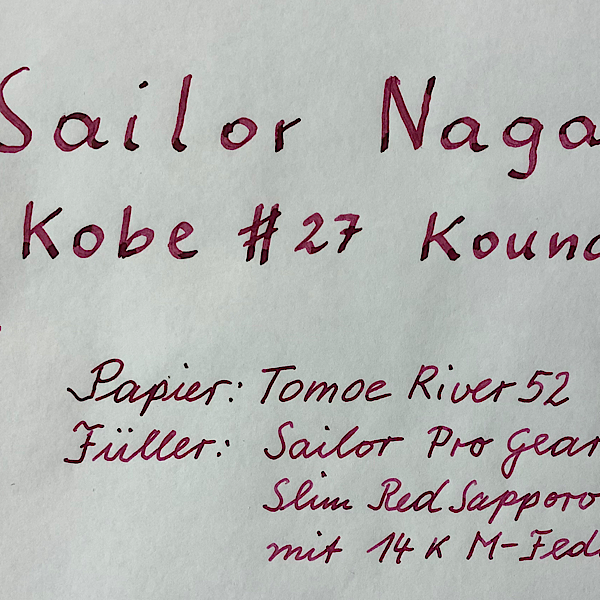 Sailor Naga
Kobe #27 Koun
Papier: Tomoe River 52
Füller: Sailor Pro Gear
Slim Red Sapporo
mit 14 K M-Fed